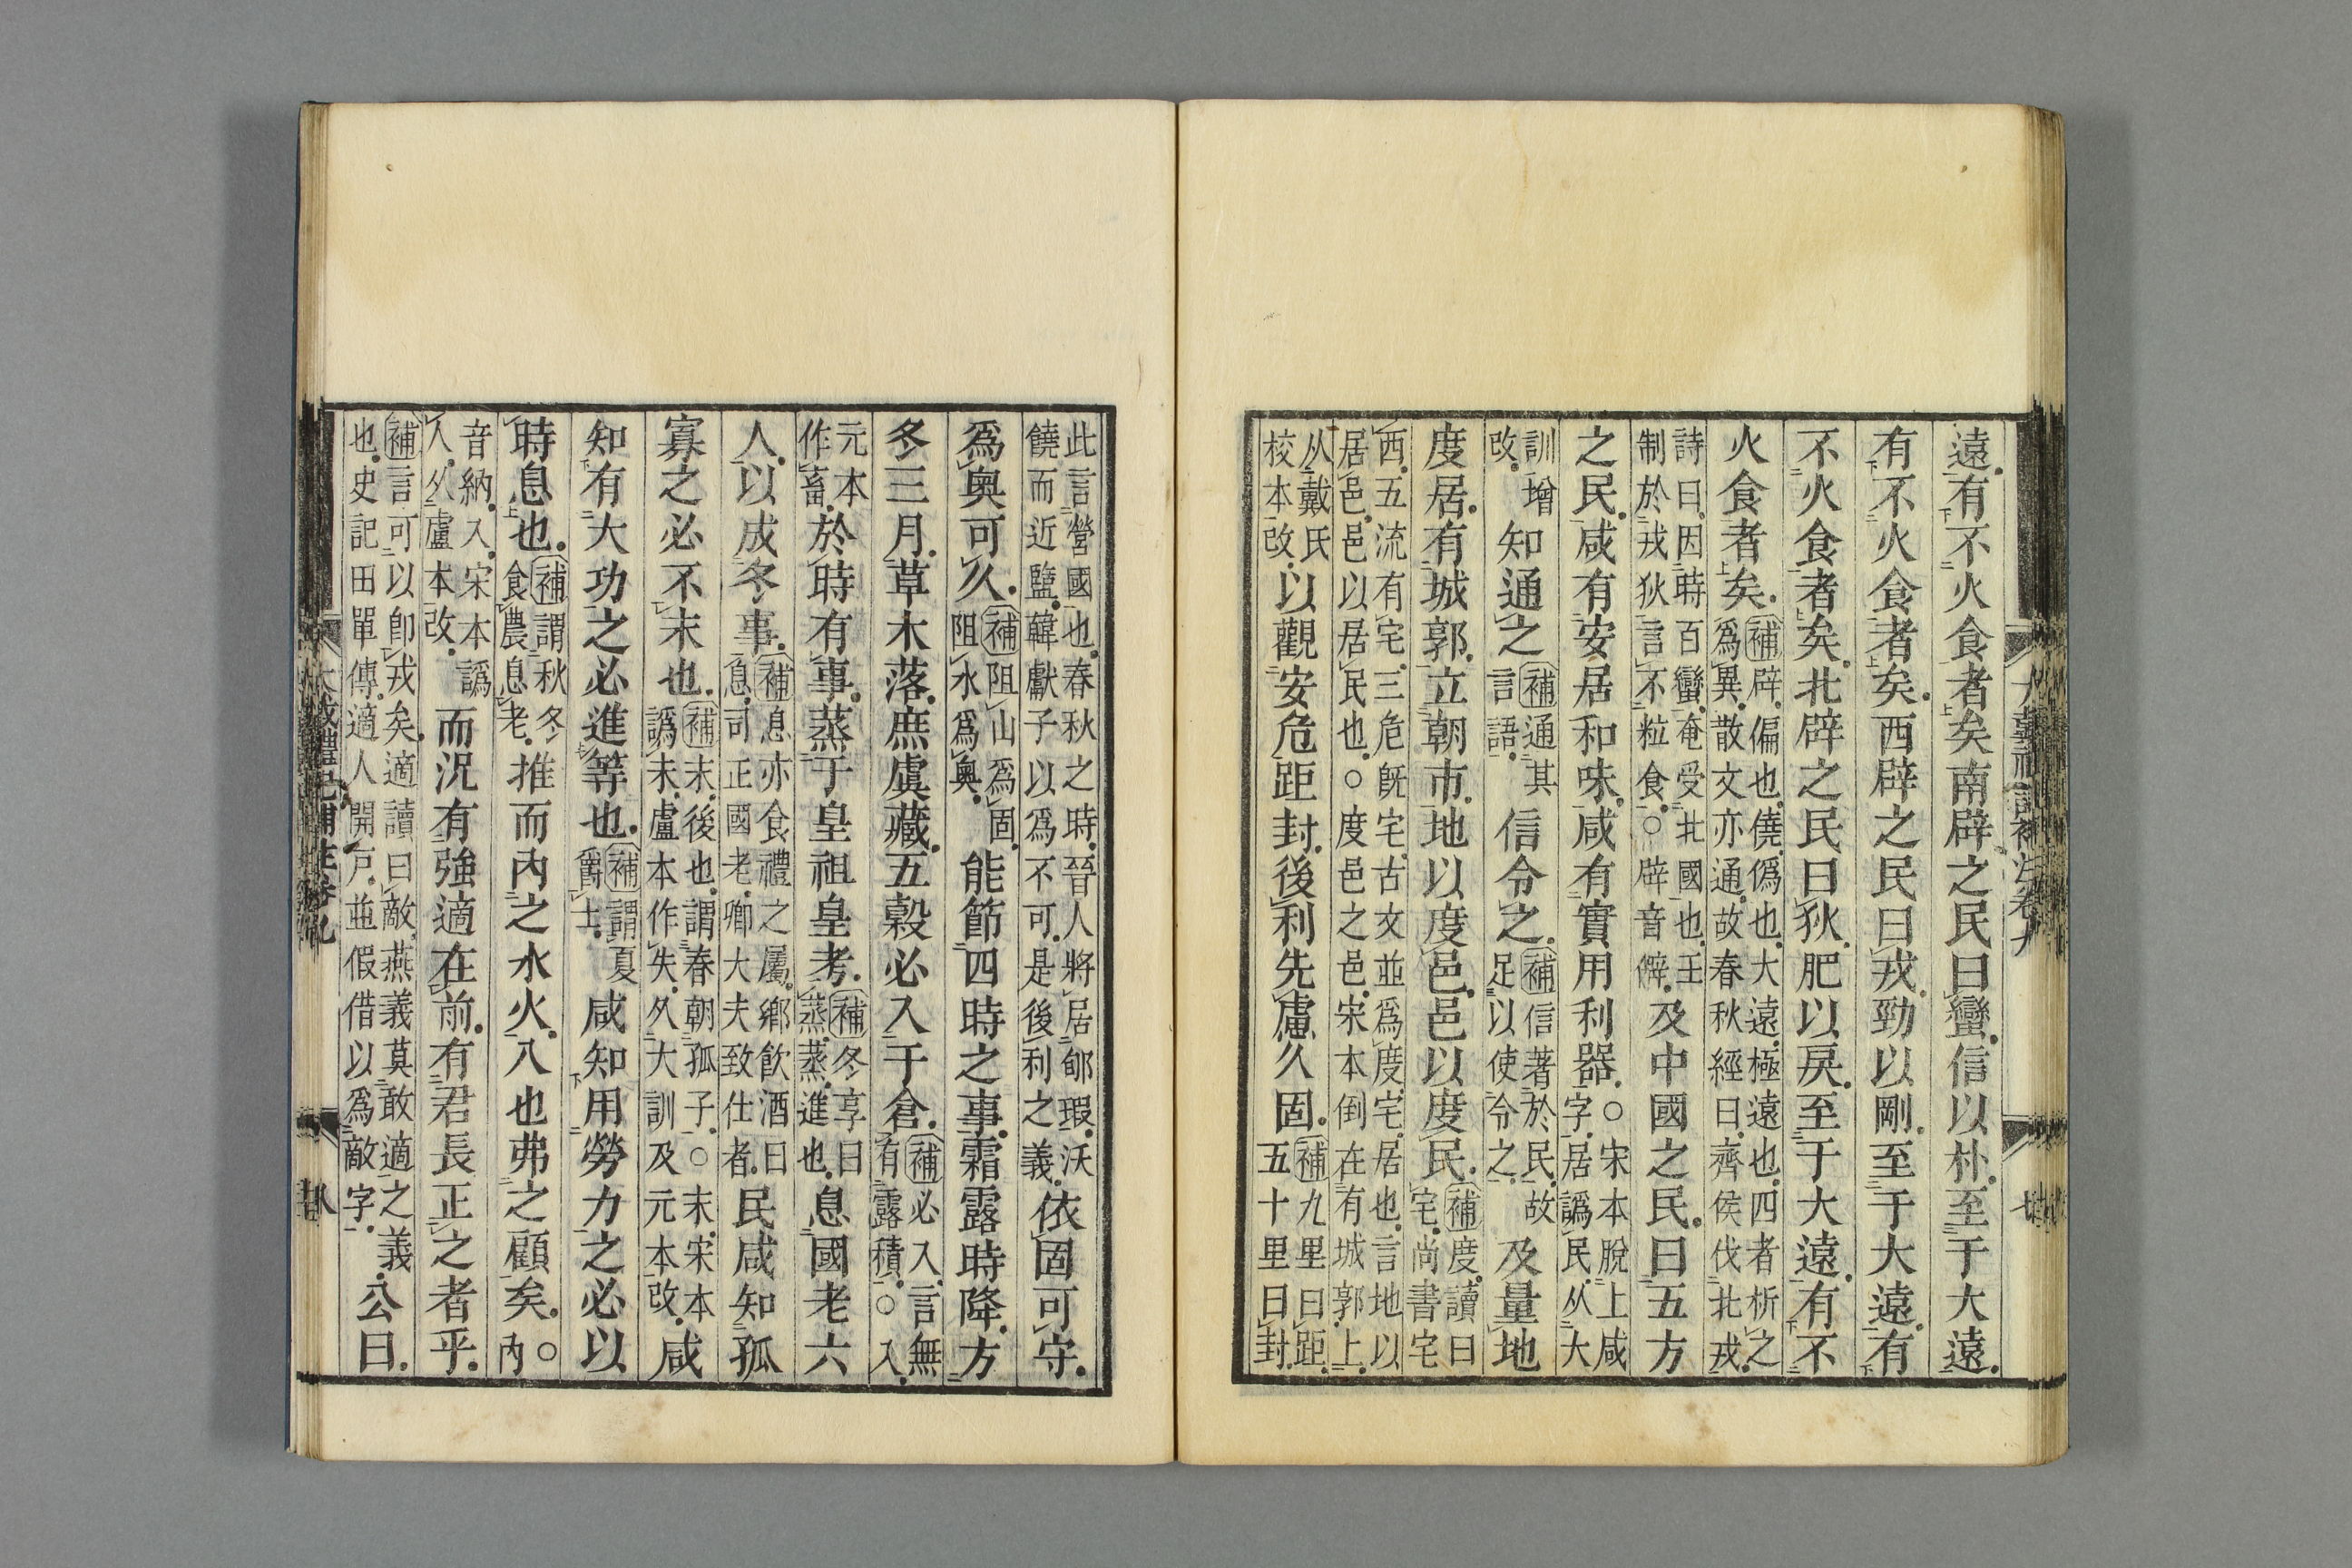 遠。有不火食者矣。南辟之民曰蠻。信以朴。至于大遠。
有不火食者矣。西辟之民曰戎。勁以剛。至于大遠。有
不火食者矣。北辟之民曰狄。肥以戾。至于大遠。有不
火食者矣。補辟。偏也。僥。僞也。大遠。極遠也。四者析之
爲異。散文亦通。故春秋經曰。齊侯伐北戎。
詩曰。因時百蠻。奄受北國也。王
制於戎狄言不粒食。○辟音僻。及中國之民。曰五方
之民。咸有安居和味。咸有實用利器。○宋本脫上咸
字。居譌民。从大
訓增
改。知通之補通其
言語。信令之。補信著於民。故
足以使令之。及量地
度居。有城郭。立朝市。地以度邑。邑以度民。補度。讀曰
宅。尚書宅
西。五流有宅。三危旣宅。古文並爲度。宅。居也。言地以
居邑。邑以居民也。○度邑之邑。宋本倒在有城郭上。
从戴氏
校本改。以觀安危距封。後利先慮。久固。補九里曰距。
五十里曰封。
此言營國也。春秋之時。晉人將居郇瑕。沃
饒而近鹽。韓獻子以爲不可。是後利之義。依固可守。
爲奧可久。補阻山爲固。
阻水爲奧。能節四時之事。霜露時降。方
冬三月。草木落。庶虞藏。五穀必入于倉。補必入。言無
有露積。○入。
元本
作畜。於時有事。蒸于皇祖皇考。補冬享曰
蒸。蒸。進也。息國老六
人。以成冬事。補息亦食禮之屬。鄉飲酒曰
息司正。國老。卿大夫致仕者。民咸知孤
寡之必不末也。補末。後也。謂春朝孤子。○末。宋本
譌未。盧本作失。从大訓及元本改。咸
知有大功之必進等也。補謂夏
爵士。咸知用勞力之必以
時息也。補謂秋冬
食農息老。推而內之水火。入也弗之顧矣。○內
音納。入。宋本譌
人。从盧本改。而況有強適在前。有君長正之者乎。
補言可以卽戎矣。適讀曰敵。燕義莫敢適之義。
也。史記田單傳。適人開戸。並假借以爲敵字。公曰。
大戴禮記補注卷九
八